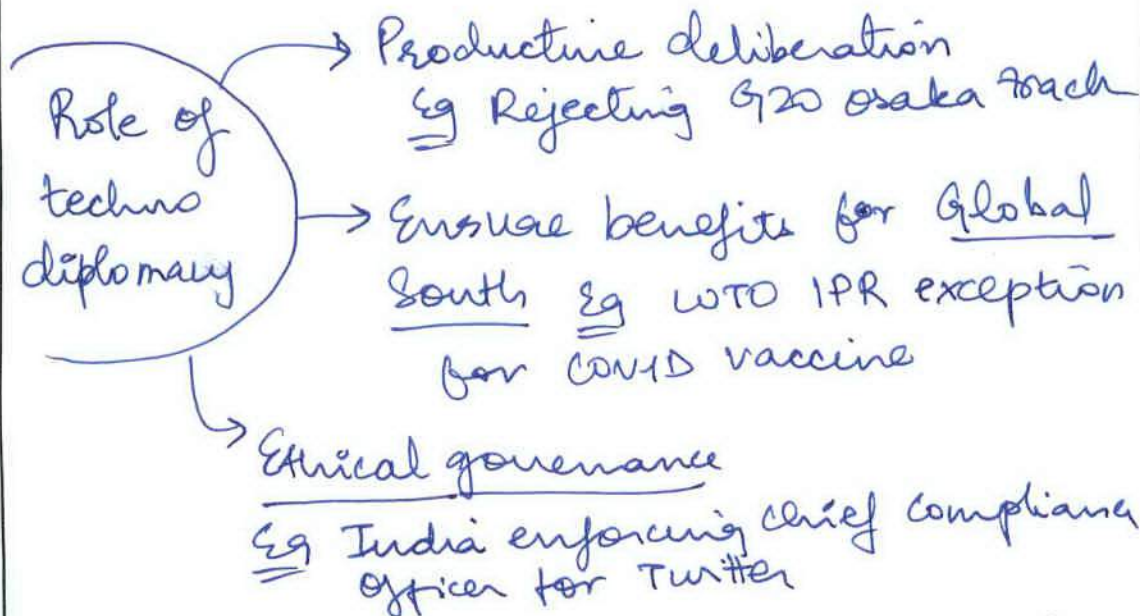 Role of
techno
diplomacy
Productive deliberation
Eg Rejecting G20 osaka track
Ensure benefits for Global
South Eg WTO IPR exception
for COVID vaccine
Ethical governance
Eg India enforcing chief compliance
officer for Twitter